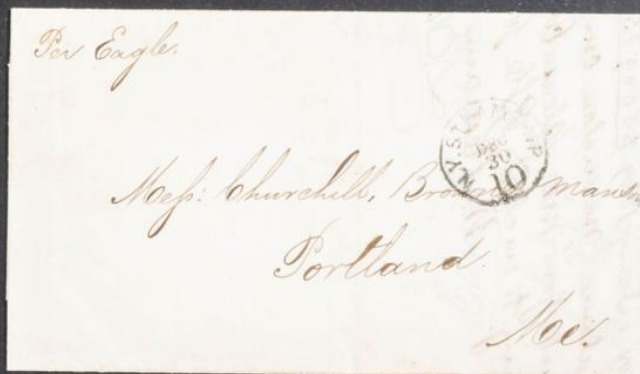 Per Eagle.
N.Y. STEAMSHIP
DEC
30
10
Mess: Churchill, Browns &
Portland
Me.